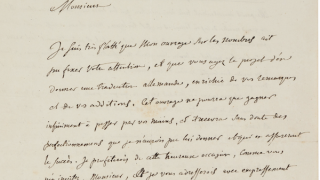 Monsieur
Je suis très flatté que mon ouvrage sur les nombres ait
pu fixer votre attention, et que vous ayez le projet d'en
donner une traduction allemande, enrichie de vos remarques
et de vos additions. Cet ouvrage ne pourra que gagner
infiniment à passer par vos mains, et recevra sans doute des
perfectionnemens que je n'aurois pu lui donner et qui en assureront
le succès. Je profiterai de cette heureuse occasion, comme vous
m'y invitez, Monsieur, et je vous adresserai avec empressement